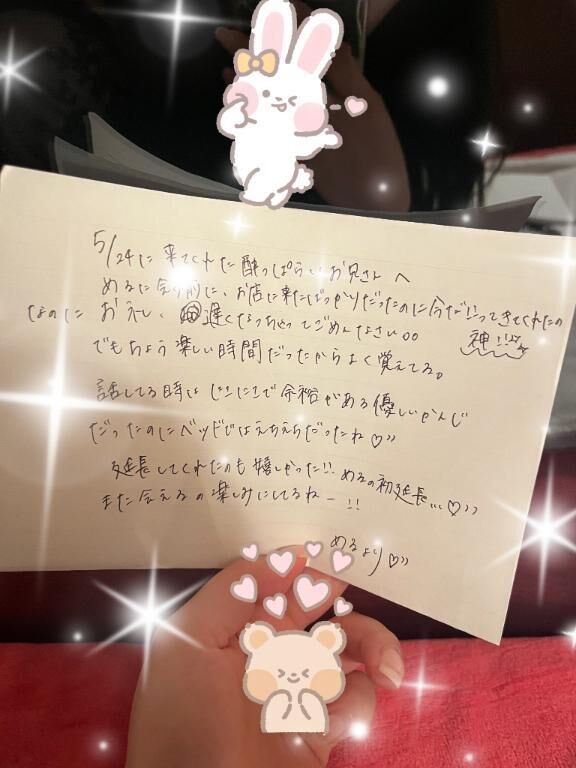 5/24に来てくれた酔っぱらいお兄さんへ
めるに会う前に、お店に来たばっかりだったのに今だ行ってきてくれたの
神!!
なのにお礼、遅くなっちゃってごめんなさい。。
でもちょう楽しい時間だったからよく覚えてる。
話してる時はじこにこで余裕がある優しいかんじ
だったのにベッドではえちえちだったね♡
延長してくれたのも嬉しかった!! めるの初延長...♡
また会えるの楽しみにしてるねー!!
めるより♡